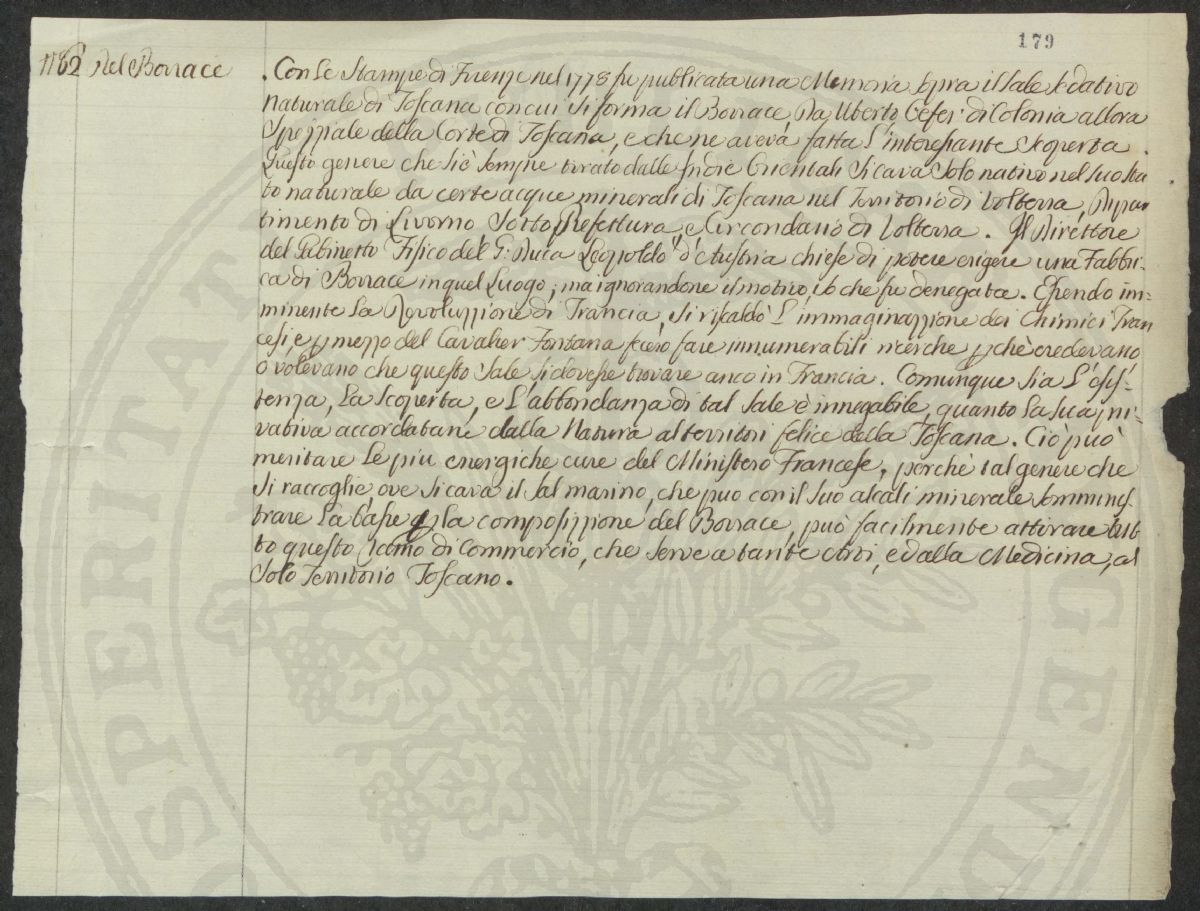 179
1782 Del Borrace
. Con le Stampe di Firenze nel 1778 fu publicata una Memoria sopra il Sale sedativo
naturale di Toscana con cui si forma il Borrace, Da Uberto Oefer di Colonia allora
Speziale della Corte di Toscana, e che ne aveva fatta l'interessante scoperta.
Questo genere che si è sempre tirato dalle Indie Orientali si cava solo nativo nel suo sta
to naturale da certe acque minerali di Toscana nel Territorio di Volterra, Dipar
timento di Livorno Sotto Prefettura, e Circondario di Volterra. Il Direttore
del Gabinetto Fisico del G: Duca Leopoldo d'Austria chiese di potere erigere una Fabbri-
ca di Borrace in quel Luogo; ma ignorandone il motivo, ciò che fu denegata. Essendo im=
minente la Rivoluzzione di Francia, si riscaldò l'immaginazzione dei Chimici Fran
cesi, e p mezzo del Cavalier Fontana fecero fare innumerabili ricerche pchè credevano
o volevano che questo Sale si dovesse trovare anco in Francia. Comunque sia l'esis-
tenza, la scoperta, e l'abbondanza di tal Sale è innegabile, quanto la sua pri-
vativa accordatane dalla Natura al territori felice della Toscana. Ciò può
meritare le piu energiche cure del Ministero Francese, perchè tal genere che
si raccoglie, ove si cava il Sal marino, che puo con il suo alcali minerale somminis
trare la base p la composizzione del Borrace, può facilmente attirare tut
to questo ramo di Commercio, che serve a tante Arti, e dalla Medicina, al
solo Territorio Toscano.